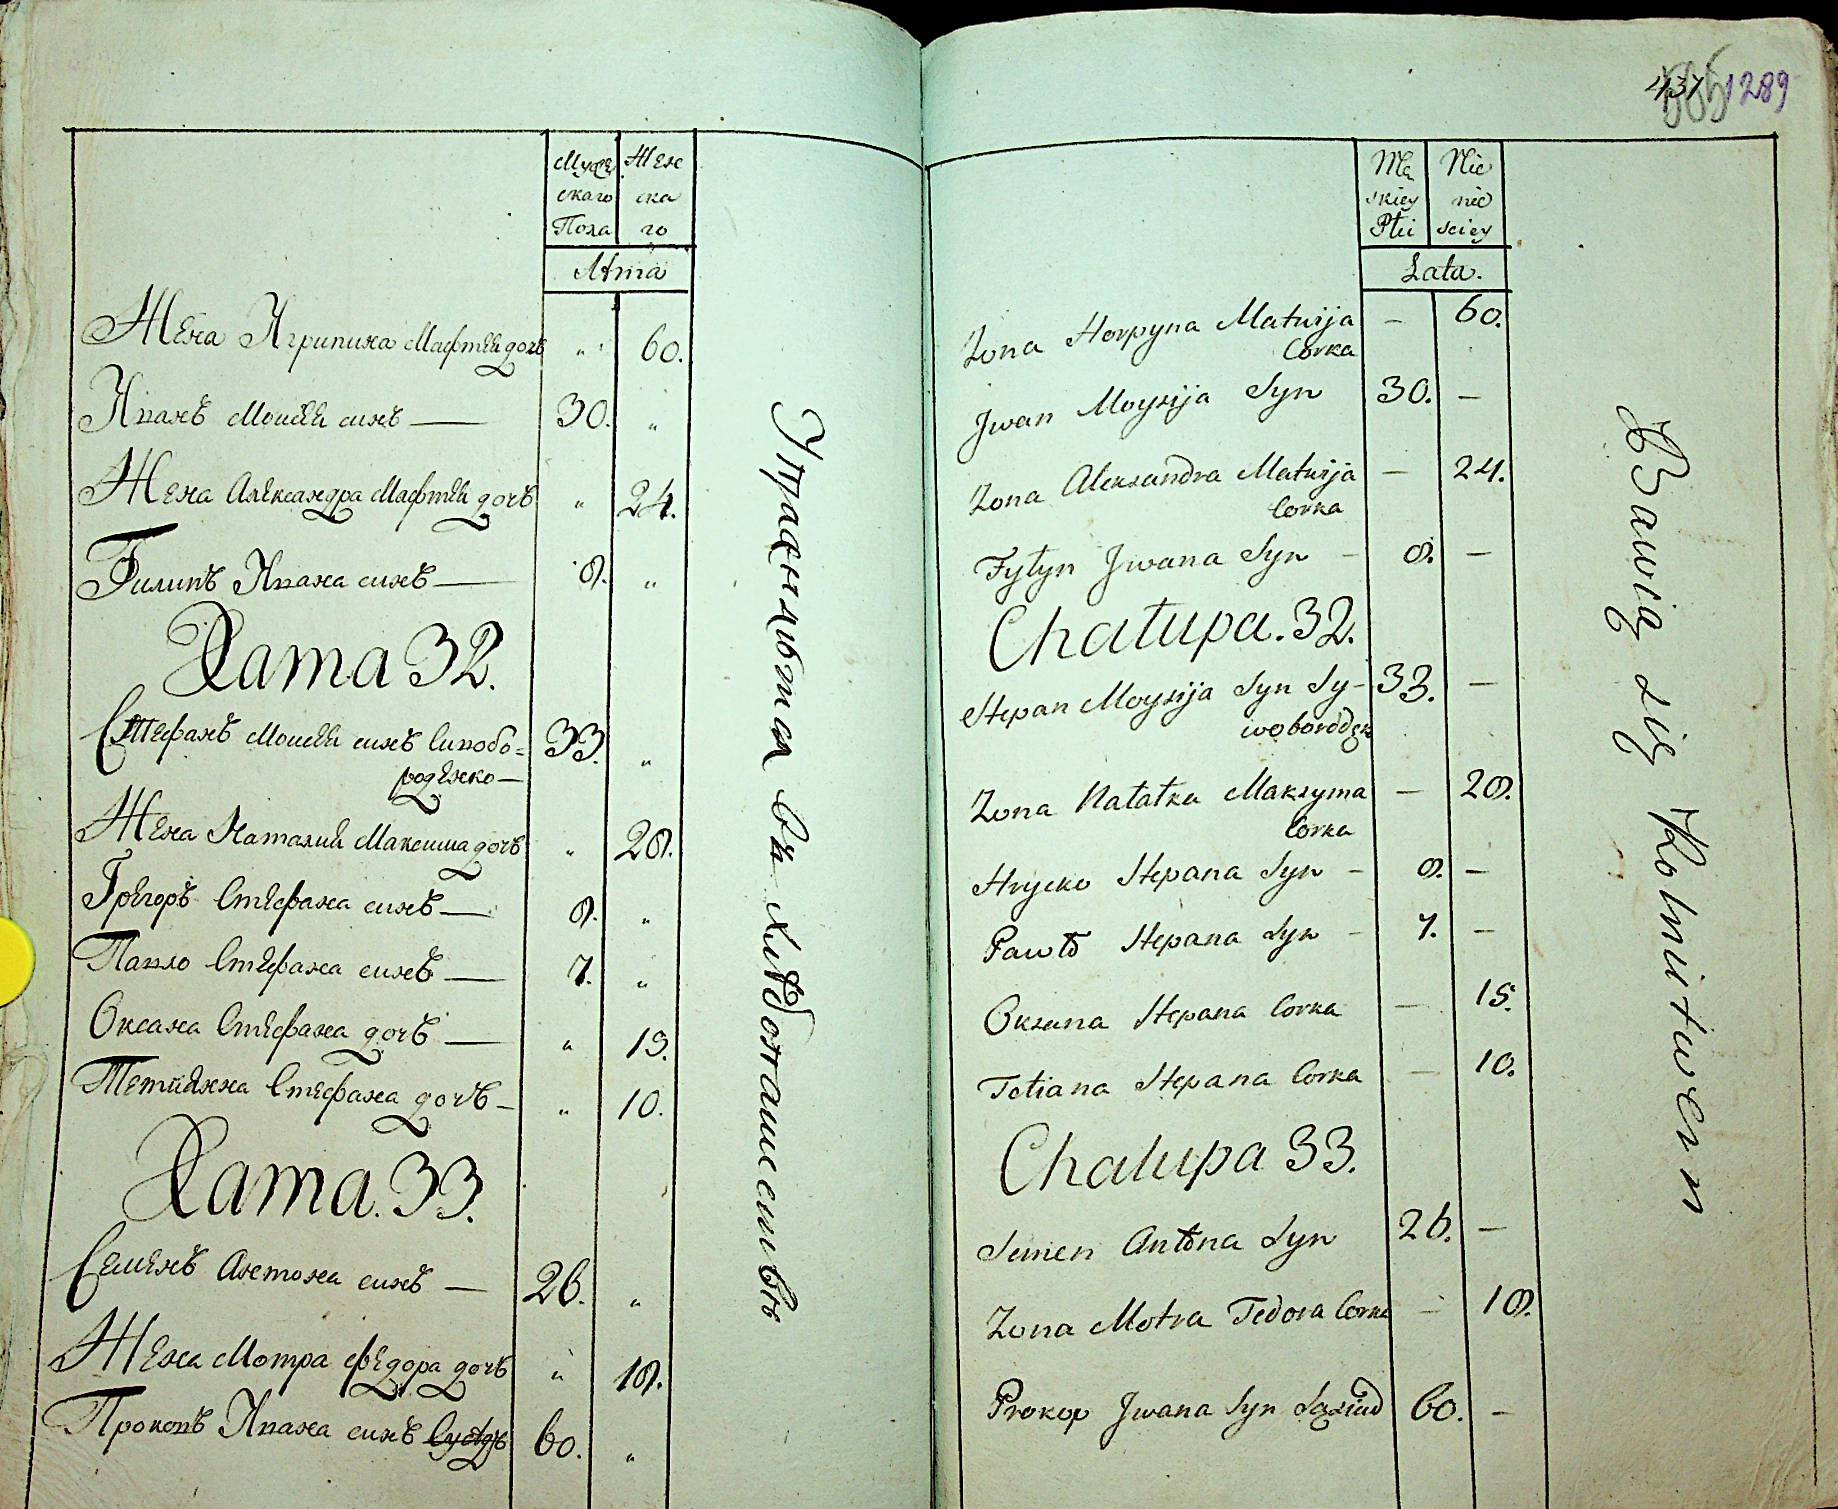 Мужескаго Пола
Женскаго
Лѣта
Жена Агрипина Мафтѣй дочь " 60.
Иванъ Моисѣй синъ — 30. "
Жена Александра Мафтѣй дочь " 24.
Филипъ Ивана синъ — 8. "
Хата 32.
Стефанъ Моисѣй синъ Сивобо= 33. "
роденко —
Жена Наталий Максима дочь " 28.
Грѣгоръ Стефана синъ — 8. "
Павло Стефана синъ — 7. "
Оксана Стефана дочь — " 15.
Тетиянна Стефана дочь — " 10.
Хата. 33.
Семенъ Антона синъ — 26. "
Жена Мотра Федора дочь " 18.
Прокопъ Ивана синъ Сусѣдъ 60. "
Упражняются въ хлѣбопашествѣ
437 1289
Męskiey Płci
Nie nie sciey
Lata.
Zona Horpyna Matwija — 60.
Corka
Jwan Moysija Syn 30. —
Zona Alexandra Matwija — 24.
Corka
Fyłyp Jwana Syn — 8. —
Chałupa. 32.
Stepan Moysija Syn Sy- 33. —
Zona Natałka Maksyma — 28.
Corka
Hrycko Stepana Syn — 8. —
Pawło Stepana Syn — 7. —
Oksana Stepana Corka — 15.
Tetiana Stepana Corka — 10.
Chałupa 33.
Semen Antona Syn 26. —
Zona Motra Fedora Corka — 18.
Prokop Jwana Syn Sąsiad 60. —
Bawią się Rolnictwem